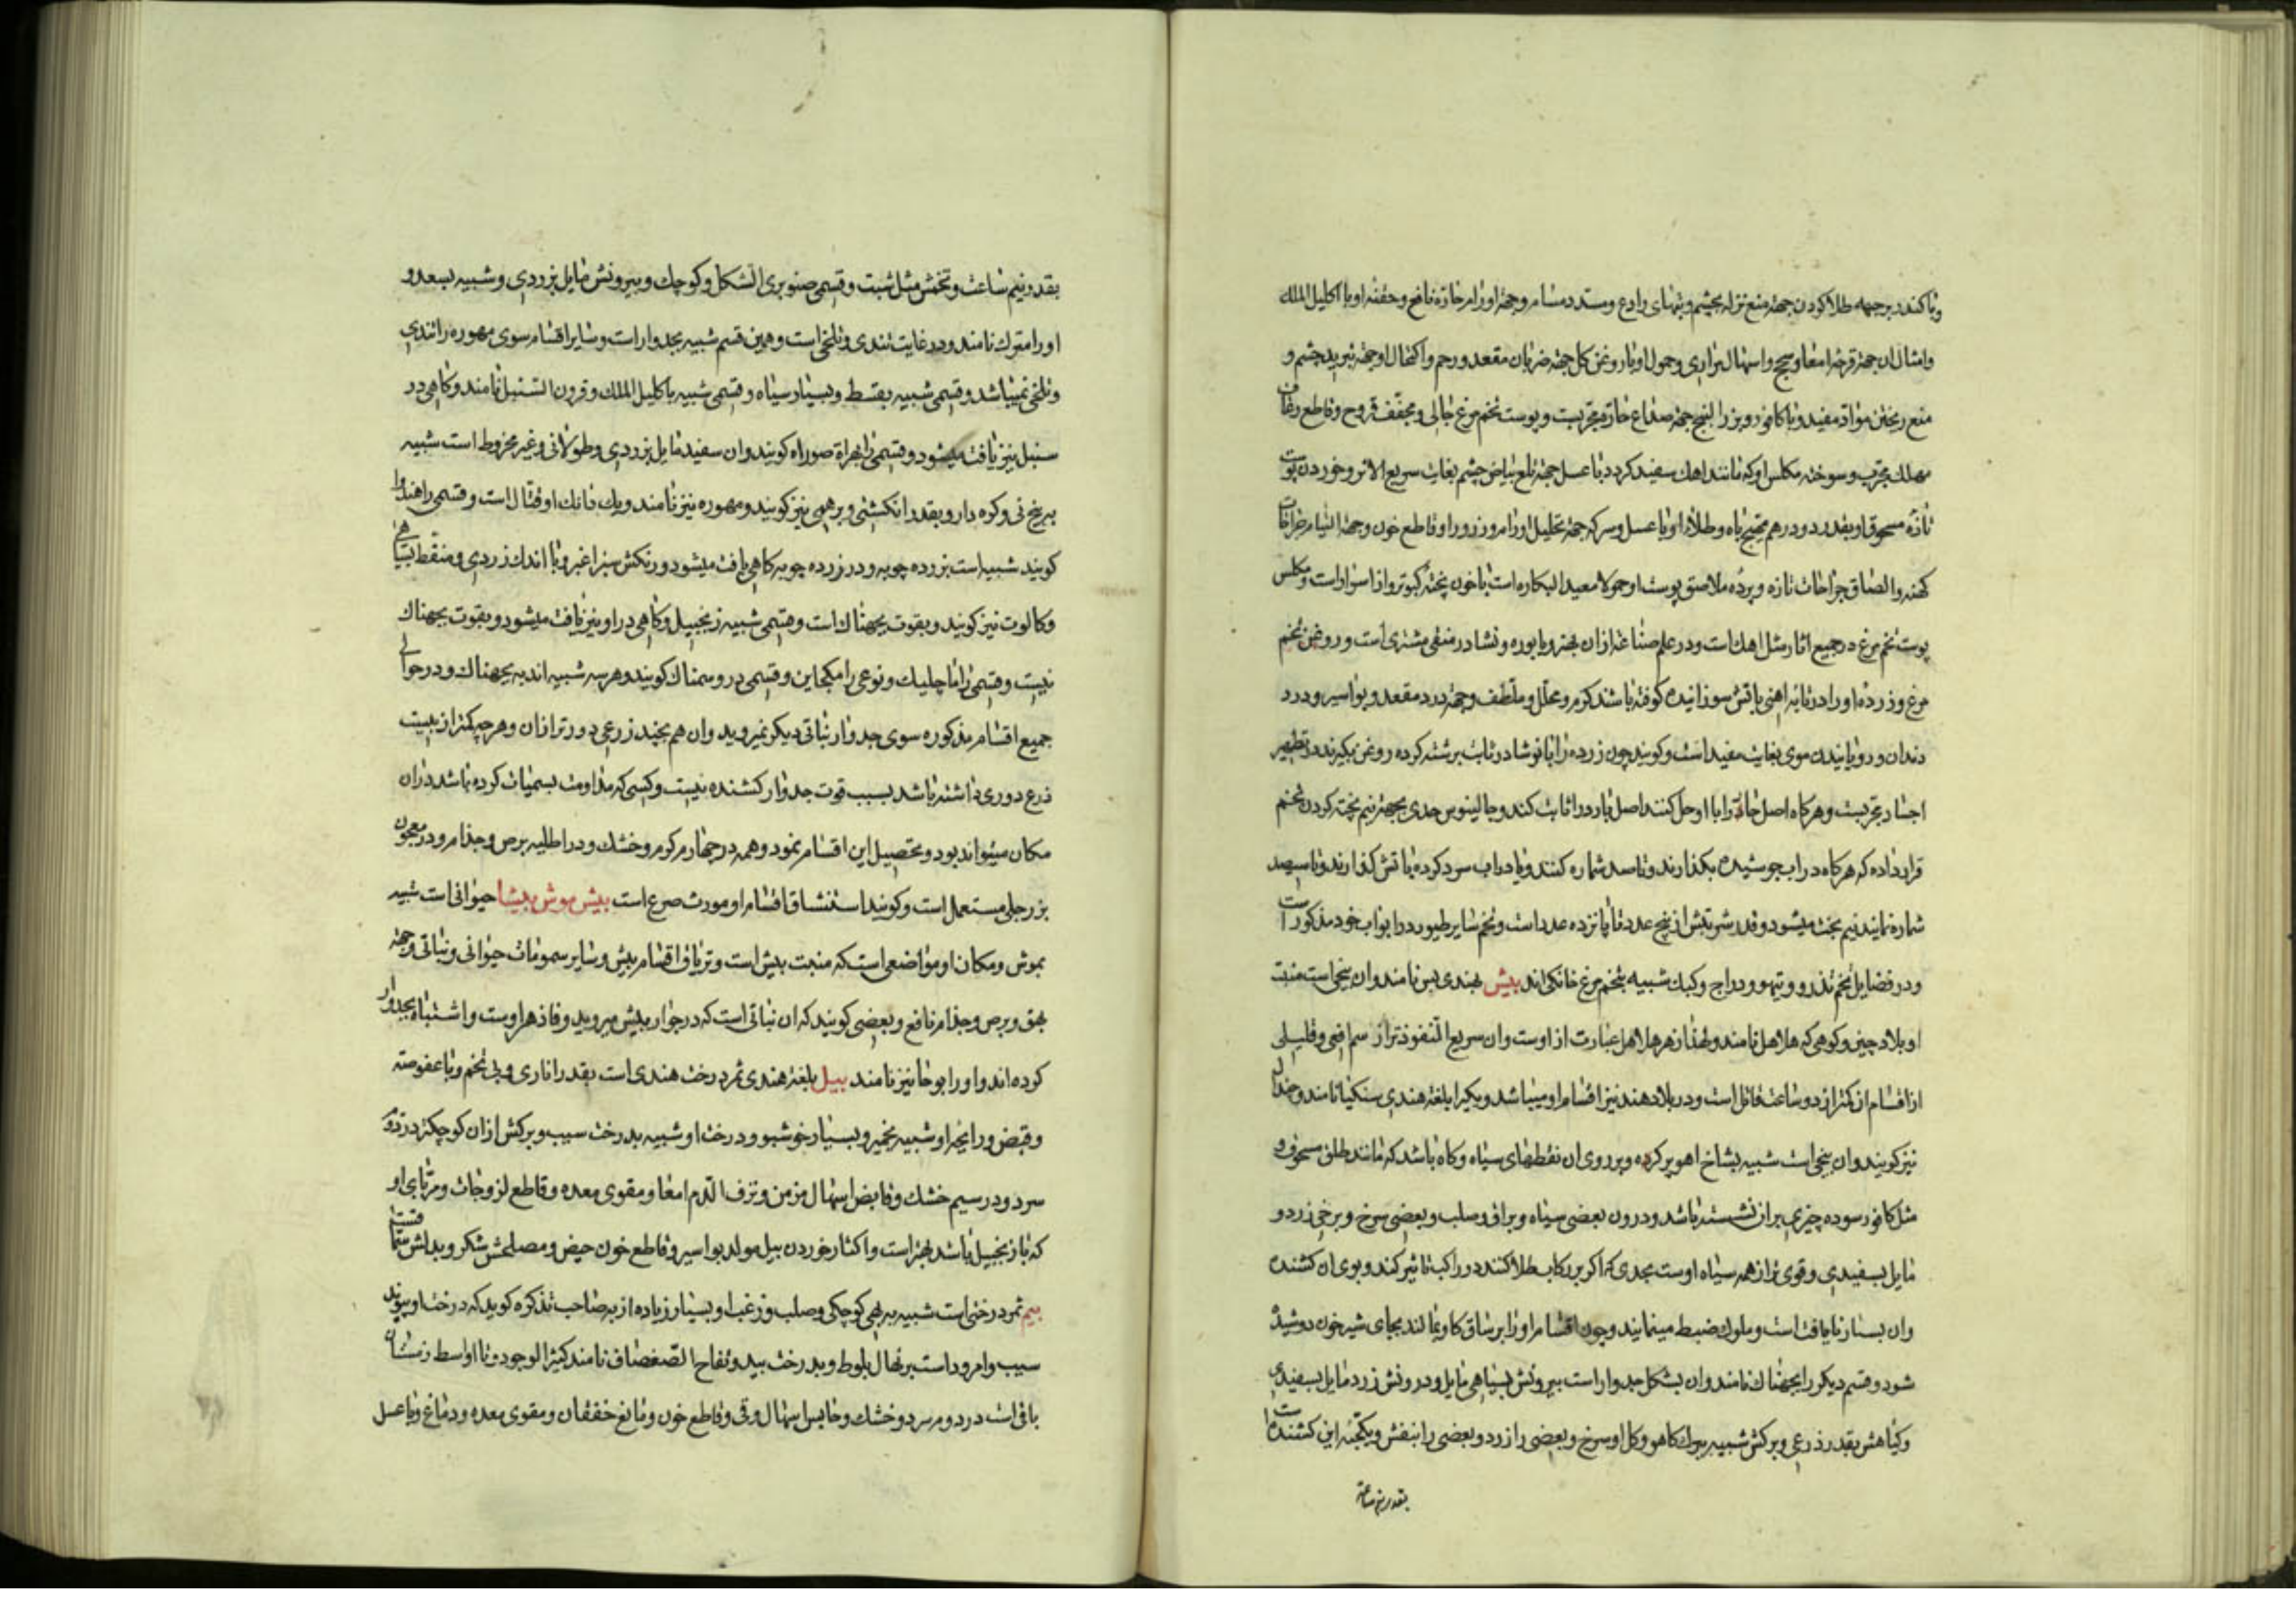 و با کندر بر جبهه طلا کردن جهة منع نزله بچشم و تنهای رادع و مسدد مسام و جهة اورام حاره نافع و حقنه او با اکلیل الملک
و امثال ان جهة قرحه امعا و سحج و اسهال مراری و حمول او با روغن کل جهة ضربان مقعد و رحم و اکتحال او جهة تبرید چشم و
منع ریختن مواد مفید و با کافور و بزر البنج جهة صداع حاره مجربست و پوست تخم مرغ جالی و مجفف قروح و قاطع رعاف
مهلک مجرب و سوخته مکلس او که مانند اهک سفید کردد با عسل جهة قلع بیاض چشم بغایت سریع الاثر و خوردن پوست
تازه مسحوق او بقدر دو درهم مهیج باه و طلاء او با عسل و سرکه جهة تحلیل اورام و زرور او قاطع خون و جهة التیام جراحات
کهنه و الصاق جراحات تازه و پرده ملاصق پوست او حمولا معید البکاره است با خون پخته کبوتر و از اسرار است و مکلس
پوست تخم مرغ در جمیع اثار مثل اهک است و در علم صناعة ازان بهتر و با بوره و نشادر منقی مشتری است و روغن تخم
مرغ و زرده او را در تابه اهنی باتش سوزانیده کوفته باشند کرم و محلل و ملطف و جهة درد مقعد و بواسیر و درد
دندان و رویانیدن موی بغایت مفید است و کویند چون زرده را با نوشادر ثابت برشته کرده روغن بکیرند در تطهیر
اجساد مجربست و هرکاه اصل حاد را با او حل کنند اصل بارد را ثابت کند و جالینوس حدی بجهة نیم پخته کردن تخم
قرار داده که هرکاه در اب جوشیده بکذارند و تا سد شماره کنند و یا در اب سرد کرده باتش کذارند و تا سیصد
شماره نمایند نیم پخت میشود و قدر شربتش از پنج عدد تا پانزده عدد است و تخم سایر طیور در ابواب خود مذکور است
و در فضایل تخم تذرو و تیهو و دراج و کبک شبیه بتخم مرغ خانکی اند بیش بهندی بس نامند و ان بیخی است منبت
او بلاد چین و کوهی که هلاهل نامند و لهذا زهر هلاهل عبارت از اوست و ان سریع النفوذ تر از سم افعی و قلیلی
از اقسام ان کمتر از دو ساعت قاتل است و در بلاد هند نیز اقسام او میباشد و یکیرا بلغة هندی سنکیا نامند و جندال
نیز کویند و ان بیخی است شبیه بشاخ اهو پر کره و بر روی ان نقطهای سیاه و کاه باشد که مانند طلق مسحوق و
مثل کافور سوده چیزی بران نشسته باشد و درون بعضی سیاه و براق و صلب و بعضی سرخ و برخی زرد و
مایل بسفیدی و قوی تر از همه سیاه اوست بحدی که اکر بر رکاب طلا کنند در راکب تاثیر کند و بوی ان کشنده
وان بسیار نایافت است و ملوک ضبط مینمایند و چون اقسام او را بر شاق کاو بمالند بجای شیر خون دوشیده
شود و قسم دیکر را بجهناک نامند و ان بشکل جدوار است بیرونش بسیاهی مایل و درونش زرد مایل بسفیدی
و کیاهش بقدر ذرعی و برکش شبیه ببرک کاهو و کل او سرخ و بعضی را زرد و بعضی را بنفش و یکحبه این کشنده است
بقدر نیم ساعة
بقدر نیم ساعت و تخمش مثل شبت و قسمی صنوبری الشکل و کوچک و بیرونش مایل بزردی و شبیه بسعد و
او را مترک نامند و در غایت تندی و تلخی است و همین قسم شبیه بجدوار است و سایر اقسام سوی مهوره را تندی
و تلخی نمیباشد و قسمی شبیه بقسط و بسیار سیاه و قسمی شبیه باکلیل الملک و قرون السنبل نامند و کاهی در
سنبل نیز یافت میشود و قسمی را بهراة صوراه کویند و ان سفید مایل بزردی و طولانی و غیر مخروط است شبیه
به بیخ نی و کره دار و بقدر انکشتی و برهمی نیز کویند و مهوره نیز نامند و یک دانک او قتال است و قسمی را هندوا
کویند شبیه است بزرده چوبه و در زرده چوبه کاهی یافت میشود و رنکش سبز اغبر و با اندک زردی و منقط بسیاهی
و کالوت نیز کویند و بقوت بجهناک است و قسمی شبیه زنجبیل و کاهی در او نیز یافت میشود و بقوت بجهناک
نیست و قسمی را ماچلیک و نوعی را مکجاین و قسمی دروسمناک کویند و هر سه شبیه اند به بجهناک و در حوالی
جمیع اقسام مذکوره سوی جدوار نباتی دیکر نمیروید و ان هم بچند زرعی دورتر ازان و هر چه کمتر از بیست
ذرع دوری داشته باشد بسبب قوت جدوار کشنده نیست و کسی که مداومت بسمیات کرده باشد دران
مکان میتواند بود و تحصیل این اقسام نمود و همه در چهارم کرم و خشک و در اطلیه برص و جذام و در معجون
بزرجلی مستعمل است و کویند استنشاق اقسام او مورث صرع است بیش موش بیشا حیوانی است شبیه
بموش و مکان او مواضعی است که منبت بیش است و تریاق اقسام بیش و سایر سمومات حیوانی و نباتی و جهة
بهق و برص و جذام نافع و بعضی کویند که ان نباتی است که در جوار بیش میروید و فاذهر اوست و اشتباه بجدوار
کرده اند و او را بوحا نیز نامند بیل بلغة هندی ثمر درخت هندی است بقدر اناری و بی تخم و با عفوصة
و قبض و رایحه او شبیه بخمیر و بسیار خوشبو و درخت او شبیه بدرخت سیب و برکش ازان کوچکتر در دوم
سرد و در سیم خشک و قابض اسهال مزمن و نزف الدم امعا و مقوی معده و قاطع لزوجات و مربای او
که با زنجبیل باشد بهتر است و اکثار خوردن بیل مولد بواسیر و قاطع خون حیض و مصلحش شکر و بدلش
بیم ثمر درختی است شبیه به بهی کوچکی و صلب و زغب او بسیار زیاده از به صاحب تذکره کوید که درخت او پیوند
سیب و امرود است بر نهال بلوط و بدرخت بید و تفاح الصفصاف نامند کثیر الوجود و تا اواسط زمستان
باقی است در دوم سرد و خشک و حابس اسهال و قی و قاطع خون و مانع خفقان و مقوی معده و دماغ و با عسل